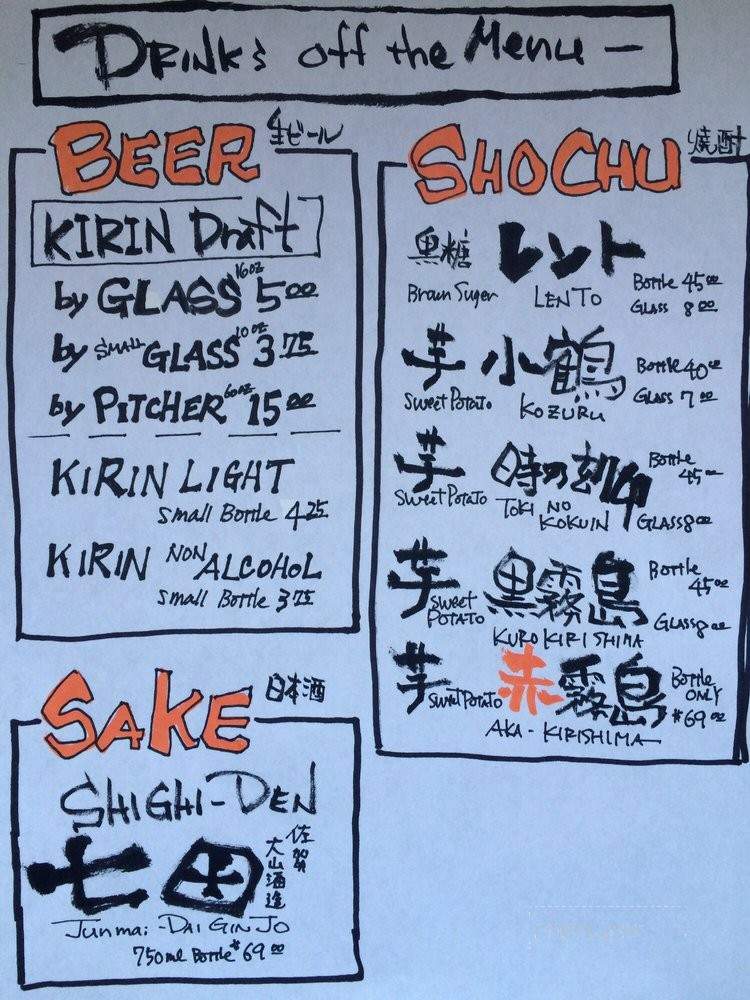 DRINKS off the Menu —
BEER 生ビール
KIRIN Draft
by GLASS 16oz 5 00
by SMALL GLASS 10oz 3 75
by PITCHER 60oz 15 00
KIRIN LIGHT
Small Bottle 4 25
KIRIN NON ALCOHOL
Small Bottle 3 75
SAKE 日本酒
SHIGHI-DEN
七田
佐賀
天山酒造
Junmai-DAI GINJO
750ml Bottle $69 00
SHOCHU 焼酎
黒糖 レント
Braun Suger LENTO
Bottle 45 00
GLASS 8 00
芋 小鶴
Sweet Potato KOZURU
Bottle 40 00
Glass 7 00
芋 時の刻印
Sweet Potato TOKI NO KOKUIN
Bottle 45 00
GLASS 8 00
芋 黒霧島
Sweet POTATO KURO KIRISHIMA
Bottle 45 00
Glass 8 00
芋 赤霧島
Sweet Potato AKA-KIRISHIMA
Bottle ONLY
$69 00